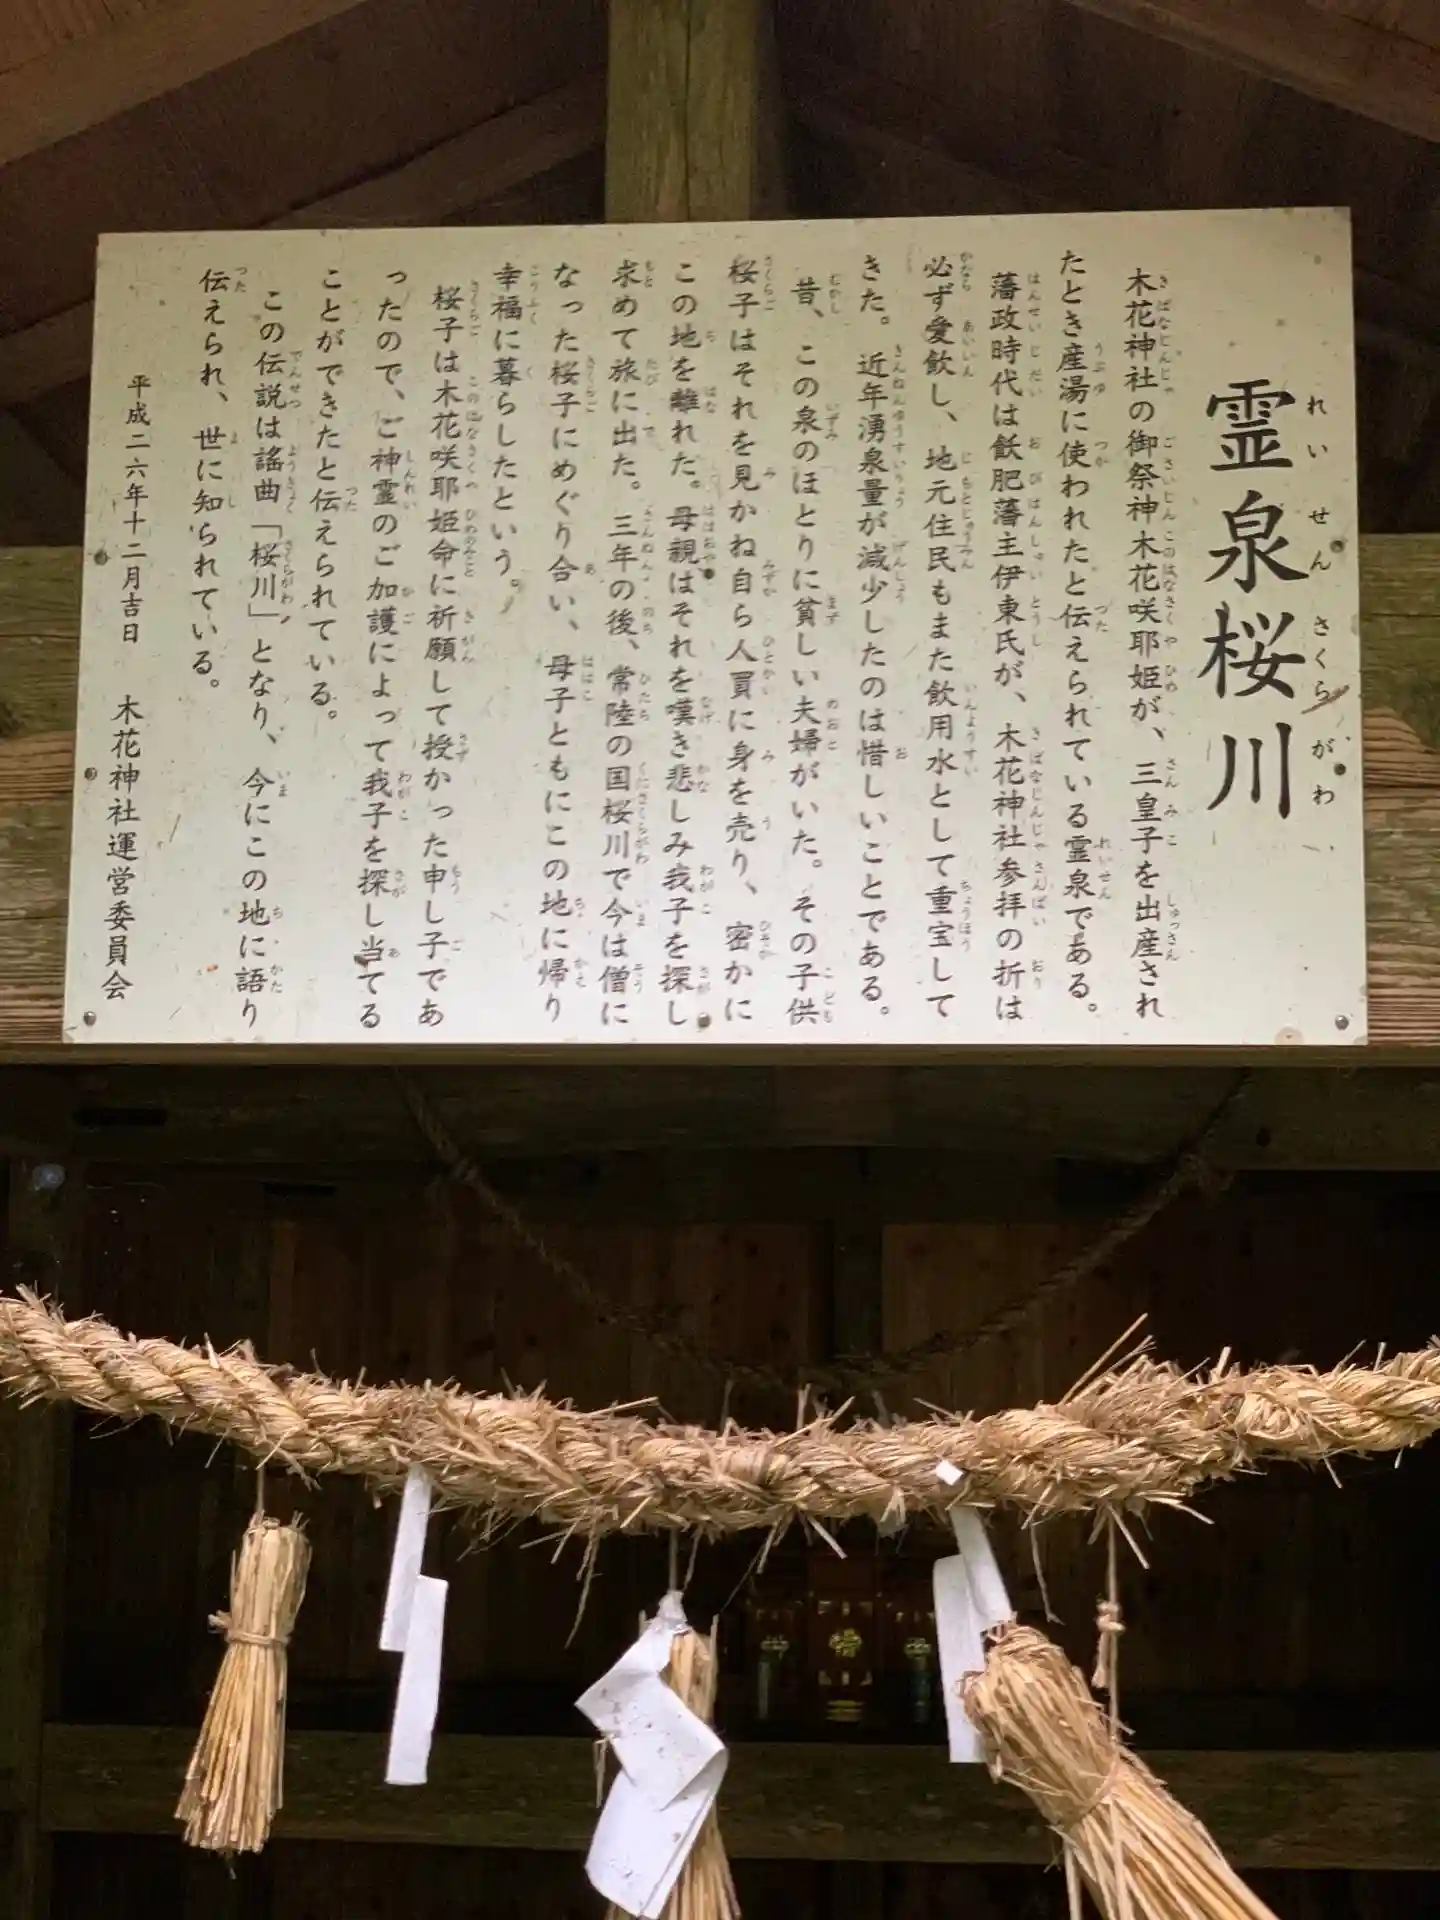 霊泉桜川
木花神社の御祭神木花咲耶姫が、三皇子を出産され
たとき産湯に使われたと伝えられている霊泉である。
藩政時代は飫肥藩主伊東氏が、木花神社参拝の折は
必ず愛飲し、地元住民もまた飲用水として重宝して
きた。近年湧泉量が減少したのは惜しいことである。
昔、この泉のほとりに貧しい夫婦がいた。その子供
桜子はそれを見かね自ら人買に身を売り、密かに
この地を離れた。母親はそれを嘆き悲しみ我子を探し
求めて旅に出た。三年の後、常陸の国桜川で今は僧に
なった桜子にめぐり合い、母子ともにこの地に帰り
幸福に暮らしたという。
桜子は木花咲耶姫命に祈願して授かった申し子であ
ったので、ご神霊のご加護によって我子を探し当てる
ことができたと伝えられている。
この伝説は謠曲「桜川」となり、今にこの地に語り
伝えられ、世に知られている。
平成二六年十二月吉日　木花神社運営委員会